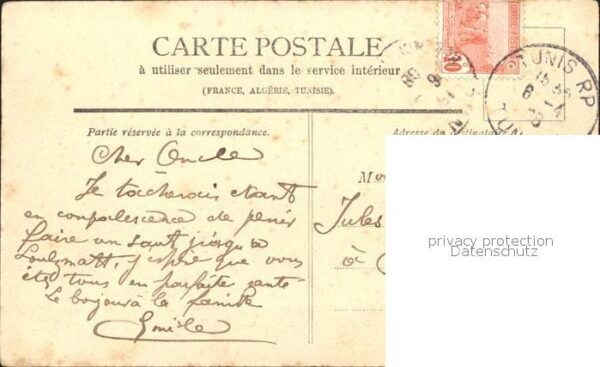 CARTE POSTALE
à utiliser seulement dans le service intérieur
(FRANCE, ALGÉRIE, TUNISIE).
TUNIS RP
Partie réservée à la correspondance.
Adresse du destinataire
Cher Oncle
Je tâcherais étant
en convalescence de
faire un saut jusqu'à
j'espère que vous
êtes tous en parfaite santé
Le bonjour à la famille
Emile
Jules
à
privacy protection
Datenschutz